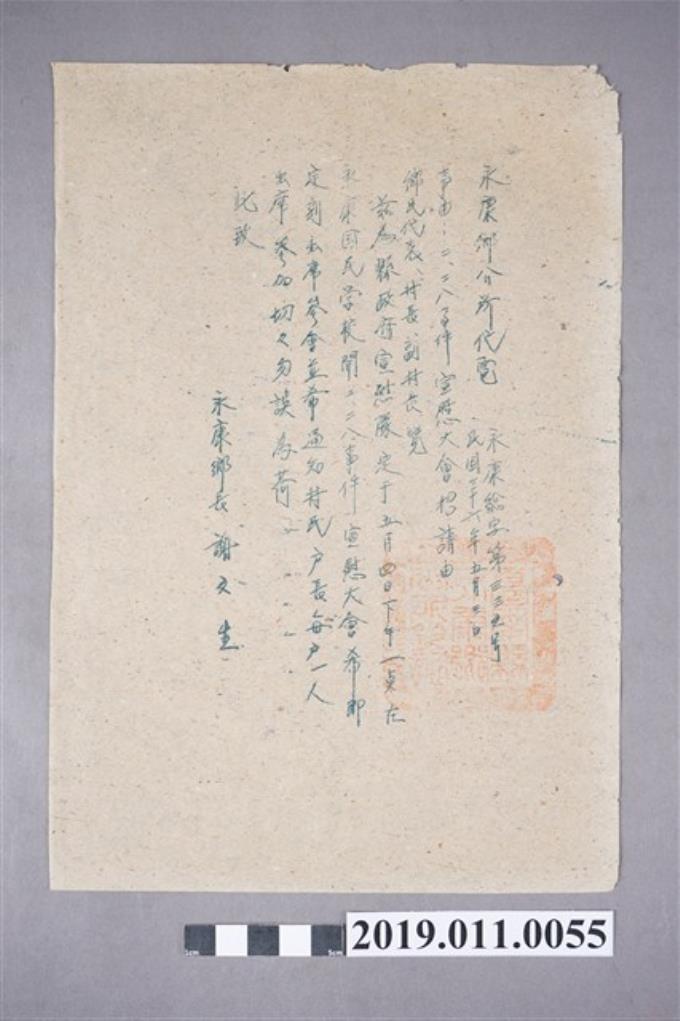 永康鄉公所代電
永康總字第三三五号
民国三十六年五月三日
事由：二、二八事件宣慰大會招請由
鄉民代表、村長、副村長覽
茲為縣政府宣慰隊定于五月四日下午一点在
永康国民学校開二二八事件宣慰大會希即
定刻出席參會並希通知村民戶長每戶一人
出席參加切々勿誤為荷
此致
永康鄉長 謝 生
1cm
5cm
2019.011.0055